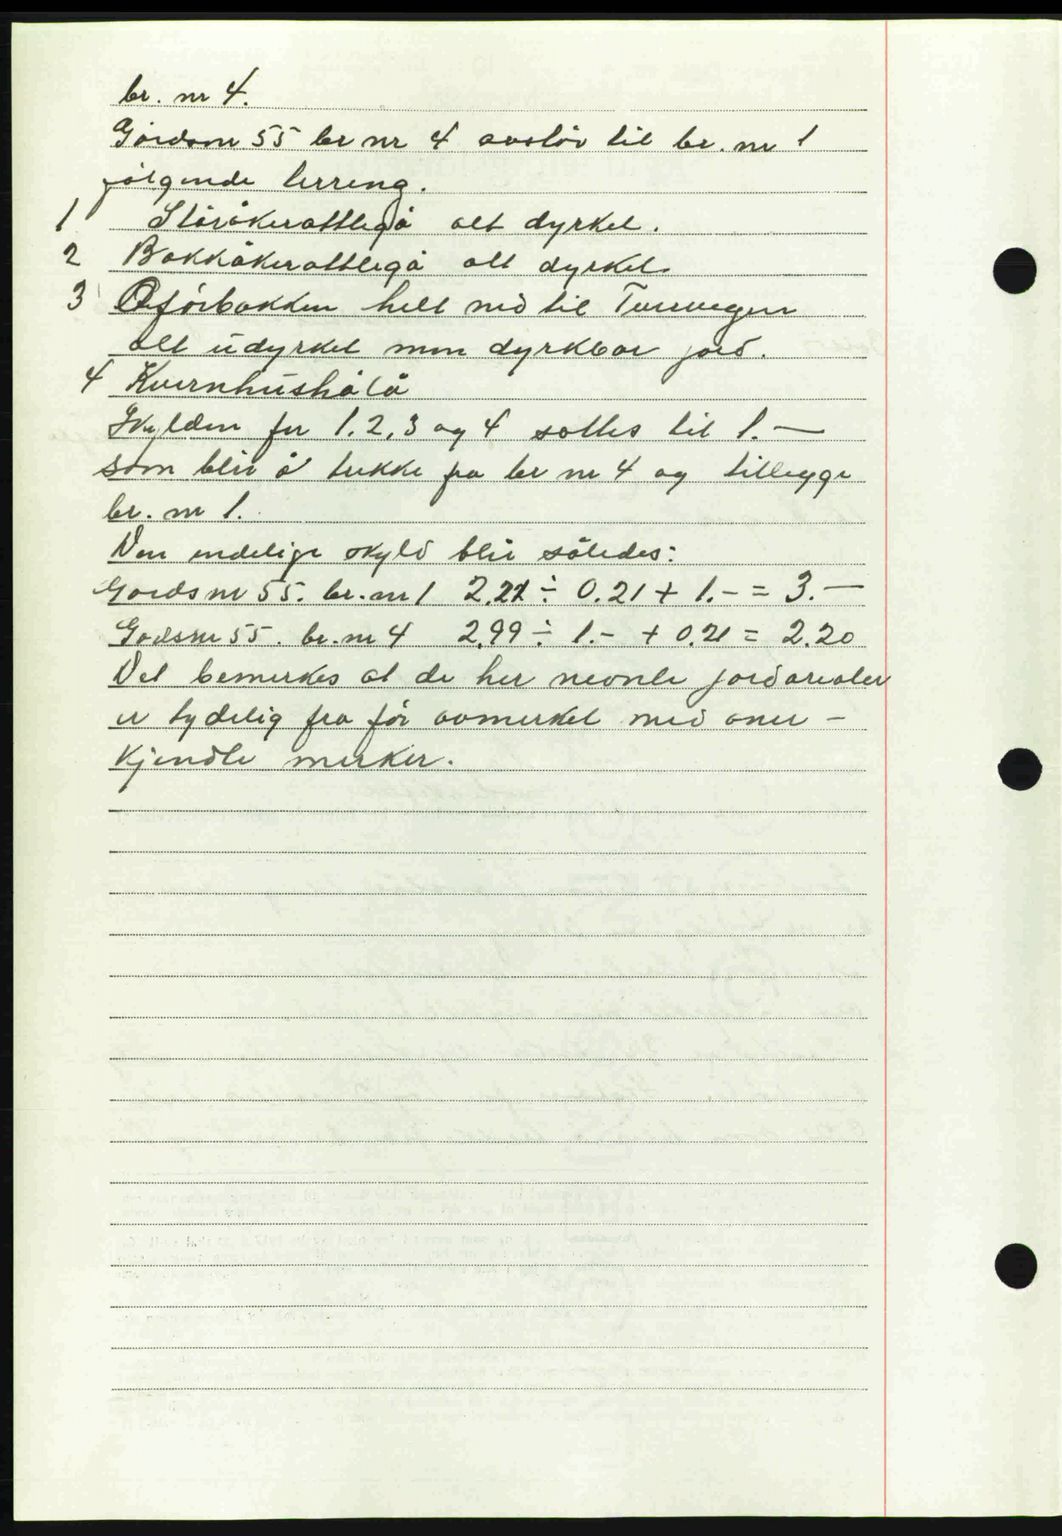 br. nr 4.
Gårdsnr 55 br nr 4 avstår til br. nr 1
følgende terreng.
1 Støråkerattlegå alt dyrket.
2 Bakkåkerattlegå alt dyrket.
3 Oførbakken helt ned til
alt udyrket men dyrkbar jord.
4 Kvernhushølå
Skylden for 1, 2, 3 og 4 settes til 1.—
som blir å trekke fra br nr 4 og tillegge
br. nr 1.
Den endelige skyld blir således:
Gårdsnr 55. br. nr 1 2.21 ÷ 0.21 + 1.- = 3.—
Gardsnr 55. br. nr 4 2.99 ÷ 1.- + 0.21 = 2.20
Det bemerkes at de her nevnte jordarealer
er tydelig fra før avmerket med aner-
kjendte merker.